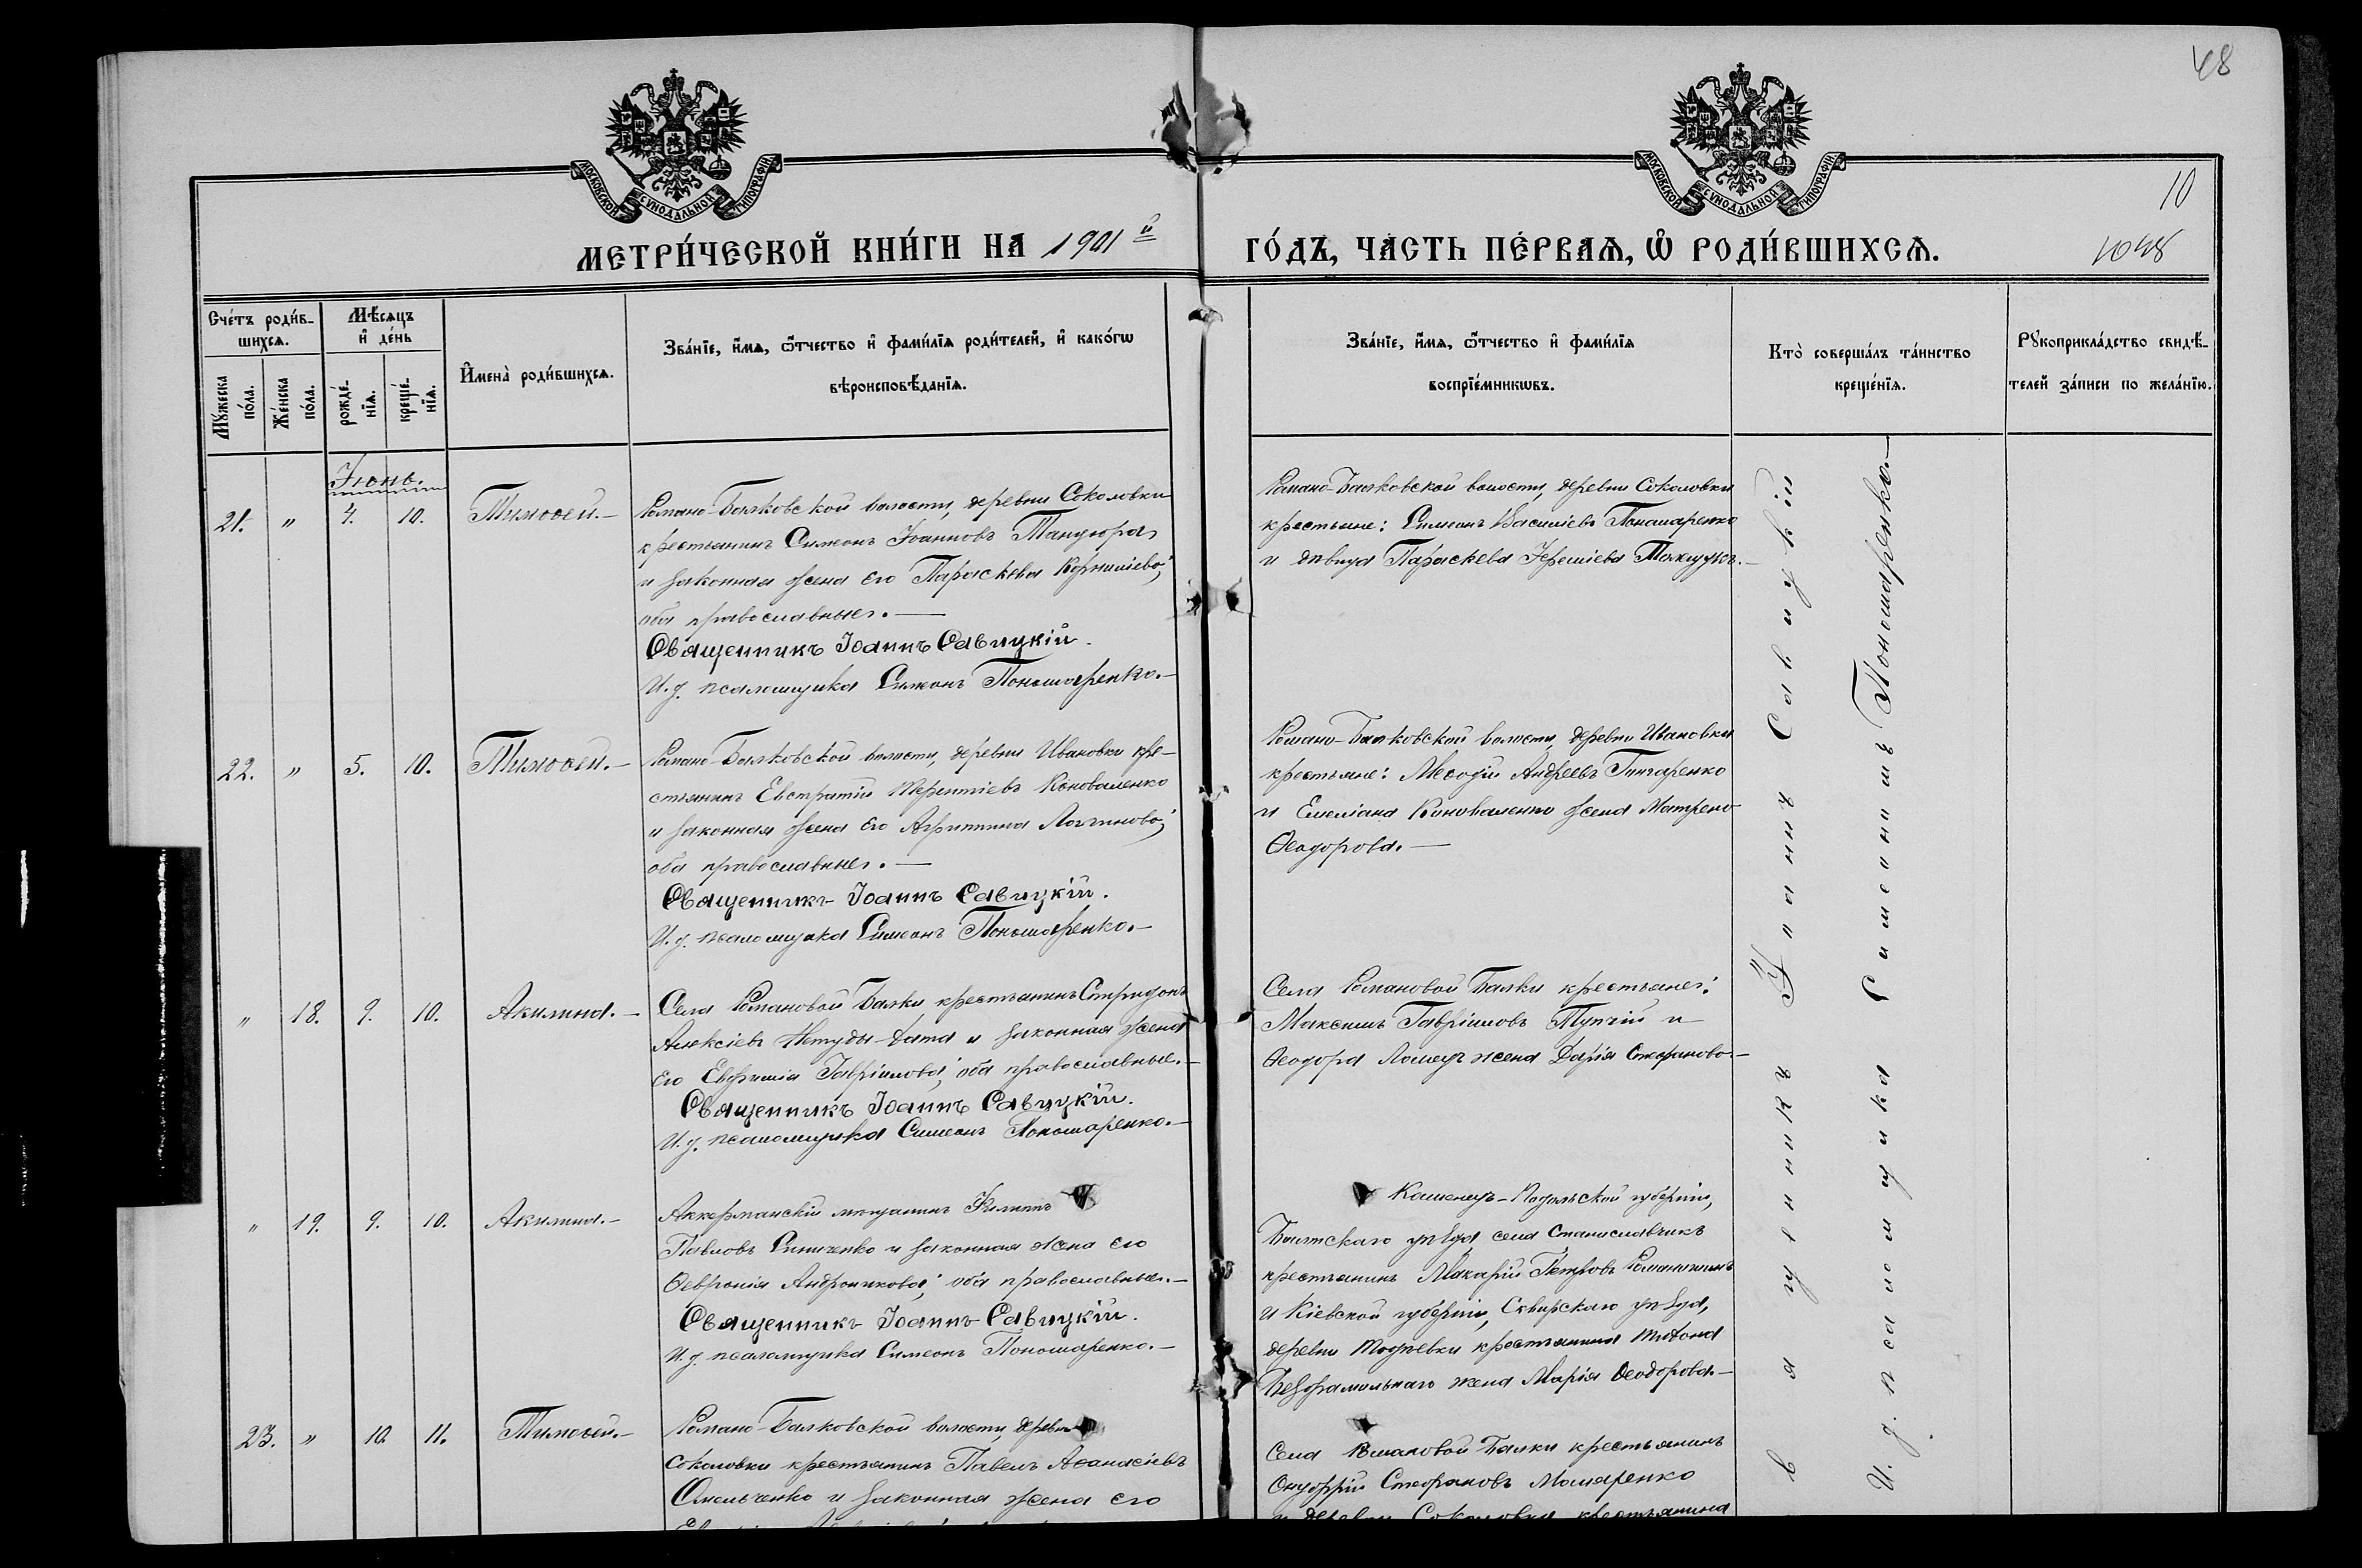 48
МОСКОВСКОЙ СѴНОДАЛЬНОЙ ТИПОГРАФІИ
МОСКОВСКОЙ СѴНОДАЛЬНОЙ ТИПОГРАФІИ
10
МЕТРИ́ЧЕСКОЙ КНИ́ГИ НА 1901й
ГО́ДЪ, ЧА́СТЬ ПЕ́РВАѦ, Ѡ РОДИ́ВШИХСѦ.
1048
Сче́тъ роди́в-
шихсѧ.
Мꙋ́жеска по́ла.
Же́нска по́ла.
Мѣ́сѧцъ
и҆ де́нь
рожде́-
нїѧ.
креще́-
нїѧ.
И҆мена̀ роди́вшихсѧ.
Зва́нїе, и҆́мѧ, ѻ҆́тчество и҆ фами́лїѧ роди́телей, и҆ како́гѡ
вѣроисповѣ́данїѧ.
Зва́нїе, и҆́мѧ, ѻ҆́тчество и҆ фами́лїѧ
воспрїе́мникѡвъ.
Кто̀ соверша́лъ та́инство
креще́нїѧ.
Рꙋкоприкла́дство свидѣ́-
телей за́писи по жела́нїю.
Іюнь.
21. " 4. 10. Тимоѳей.—
Романо-Балковской волости, деревни Соколовки
крестьянинъ Симеонъ Іоанновъ
и законная жена его Параскева Корниліева;
оба православные.—
Священникъ Іоаннъ Савицкій.
И. д. псаломщика Симеонъ Пономаренко.—
Романо-Балковской волости, деревни Соколовки
крестьяне: Симеонъ Василіевъ Пономаренко
и дѣвица Параскева
22. " 5. 10. Тимоѳей.—
Романо-Балковской волости, деревни Ивановки кре-
стьянинъ Евстратій Терентіевъ Коноваленко
и законная жена его Агрипина Логгинова;
оба православные.—
Священникъ Іоаннъ Савицкій.
И. д. псаломщика Симеонъ Пономаренко.—
Романо-Балковской волости, деревни Ивановки
крестьяне: Меѳодій Андреевъ Гончаренко
и Емеліана Коноваленко жена Матрена
Ѳеодорова.—
" 18. 9. 10. Акилина.—
Села Романовой Балки крестьянинъ Спиридонъ
Алексіевъ и законная жена
его Евфимія Гавріилова; оба православные.—
Священникъ Іоаннъ Савицкій.
И. д. псаломщика Симеонъ Пономаренко.—
Села Романовой Балки крестьяне:
Максимъ Гавріиловъ Тупчій и
Ѳеодора жена Дарія Стефанова.—
" 19. 9. 10. Акилина.—
Аккерманскій мѣщанинъ Филиппъ
Павловъ Синиченко и законная жена его
Ѳевронія Андроникова; оба православные.—
Священникъ Іоаннъ Савицкій.
И. д. псаломщика Симеонъ Пономаренко.—
Каменецъ-Подольской губерніи,
Балтскаго уѣзда, села Станиславчикъ
крестьянинъ Макарій Петровъ
и Кіевской губерніи, Сквирскаго уѣзда,
деревни крестьянина
Безфамильнаго жена Марія Ѳеодорова.—
23. " 10. 11. Тимоѳей.—
Романо-Балковской волости, деревни
Соколовки крестьянинъ Павелъ Аѳанасіевъ
Омельченко и законная жена его
Села Романовой Балки крестьянинъ
Онуфрій Стефановъ
и деревни Соколовки крестьянина
Священникъ Іоаннъ Савицкій
И. д. псаломщика Симеонъ Пономаренко.—